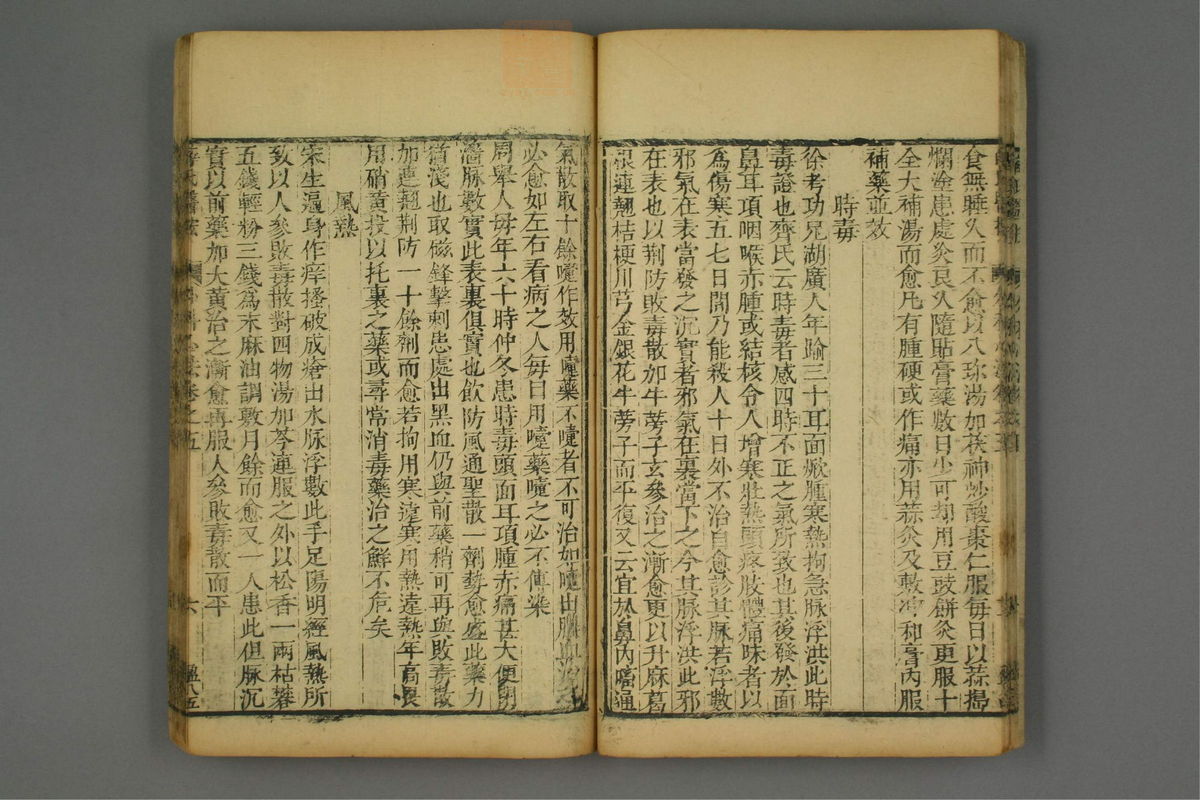 食無睡久而不愈以八珍湯加茯神炒酸棗仁服每日以蒜搗
爛塗患處灸良久隨貼膏藥數日少可却用豆豉餅灸更服十
全大補湯而愈凡有腫硬或作痛亦用蒜灸及敷冲和膏內服
補藥並效
時毒
徐考功兄湖廣人年踰三十耳面焮腫寒熱拘急脉浮洪此時
毒證也齊氏云時毒者感四時不正之氣所致也其後發於面
鼻耳項咽喉赤腫或結核令人增寒壯熱頭疼肢體痛昧者以
為傷寒五七日間乃能殺人十日外不治自愈診其脉若浮數
邪氣在表當發之沉實者邪氣在裏當下之今其脉浮洪此邪
在表也以荆防敗毒散加牛蒡子玄參治之漸愈更以升麻葛
根連翹桔梗川芎金銀花牛蒡子而平復又云宜於鼻內㗜通
氣散取十餘嚏作效用嚏藥不嚏者不可治如嚏出膿血
必愈如左右看病之人每日用嚏藥嚏之必不傳染
周舉人每年六十時仲冬患時毒頭面耳項腫赤痛甚大便閉
濇脉數實此表裏俱實也飲防風通聖散一劑勢愈盛此藥力
猶淺也取磁鋒擊刺患處出黑血仍與前藥稍可再與敗毒散
加連翹荆防一十餘劑而愈若拘用寒遠寒用熱遠熱年高畏
用硝黃投以托裏之藥或尋常消毒藥治之鮮不危矣
風熱
宋生遍身作痒搔破成瘡出水脉浮數此手足陽明經風熱所
致以人參敗毒散對四物湯加芩連服之外以松香一兩枯礬
五錢輕粉三錢為末麻油調敷月餘而愈又一人患此但脉沉
實以前藥加大黃治之漸愈再服人參敗毒散而平
薛氏醫案
卷之五
六